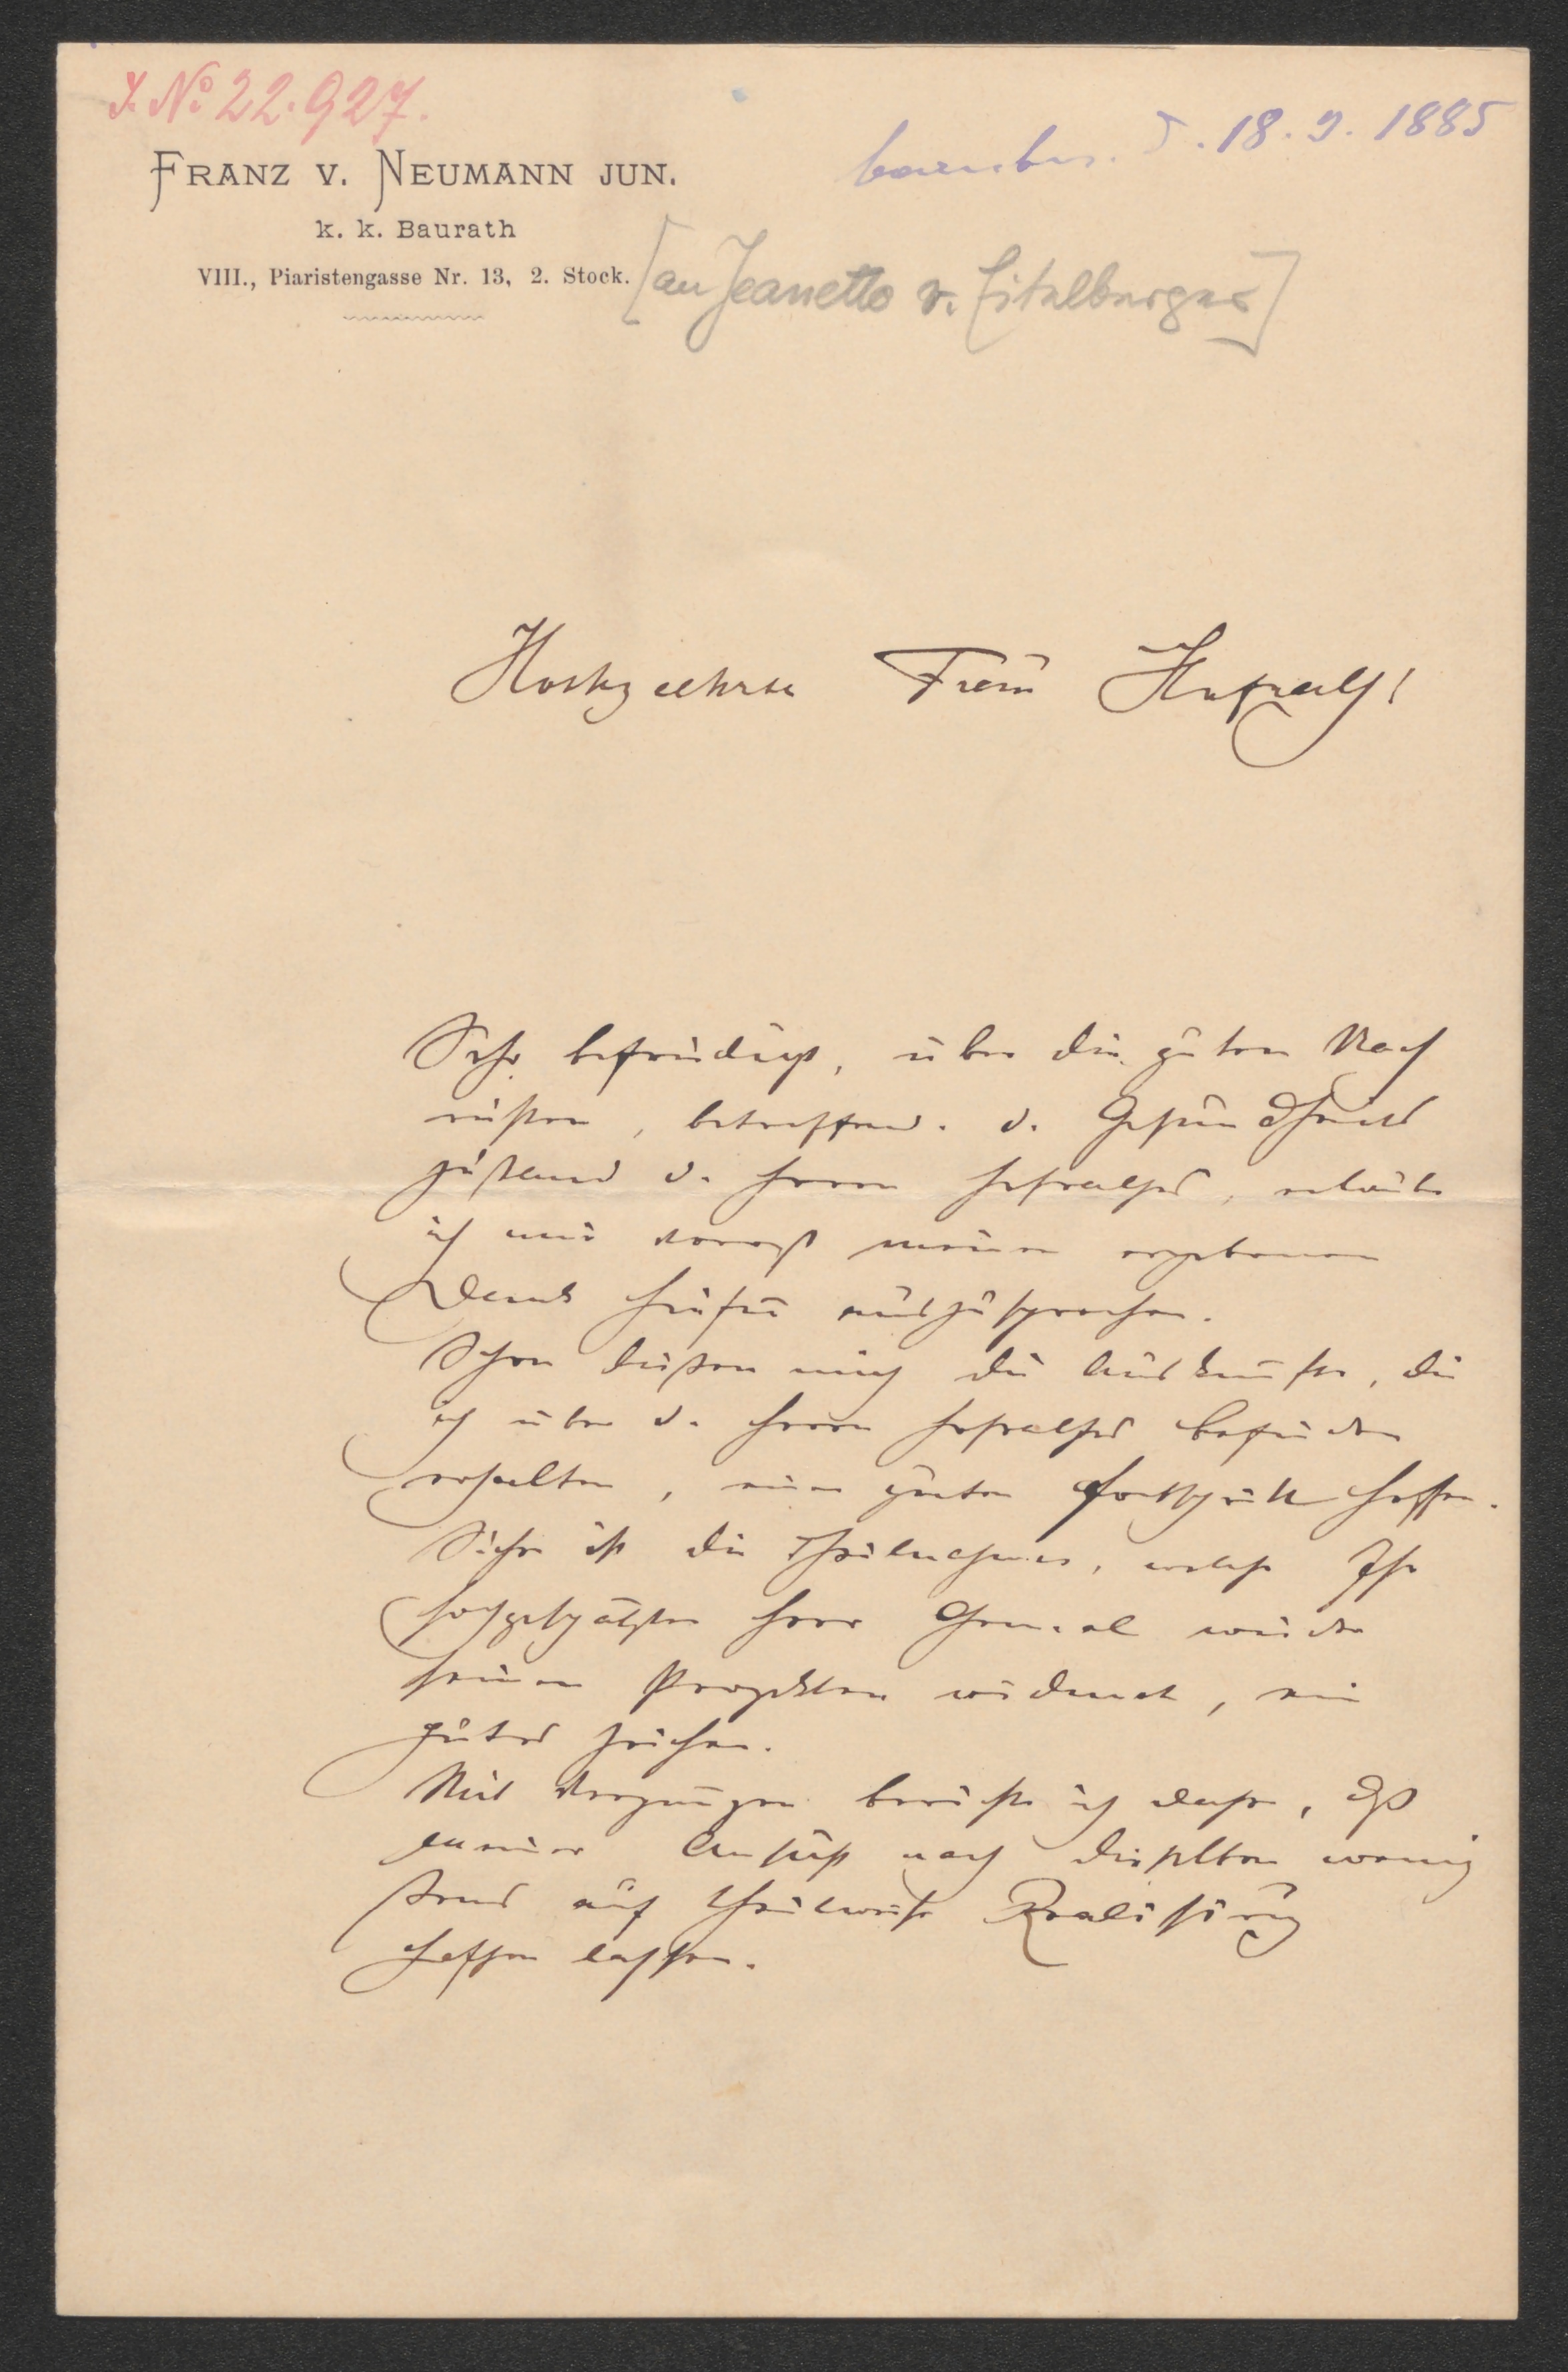 I. No 22.927.
18. 9. 1885
FRANZ V. NEUMANN JUN.
k. k. Baurath
VIII., Piaristengasse Nr. 13, 2. Stock.
[an Jeanette v. Eitelberger]
Hochgeehrte Frau Hofrath!
Sehr befriedigt, über die guten Nach
richten, betreffend. d. Gesundheits
zustand d. Herrn Hofrathes, erlaube
ich mir vorerst meinen ergebenen
Dank hiefür auszusprechen.
Schon ließen mich die Auskünfte, die
ich über d. Herrn Hofrathes Befinden
erhalten, einen guten Fortschritt hoffen.
Sicher ist die Theilnahme, welche Ihr
hochgeschätzter Herr Gemal wieder
seinen Projekten widmet, ein
gutes Zeichen.
Mit Vergnügen berichte ich daher, daß
meiner Ansicht nach dieselben wenig
stens auf theilweise Realisirung
hoffen lassen.